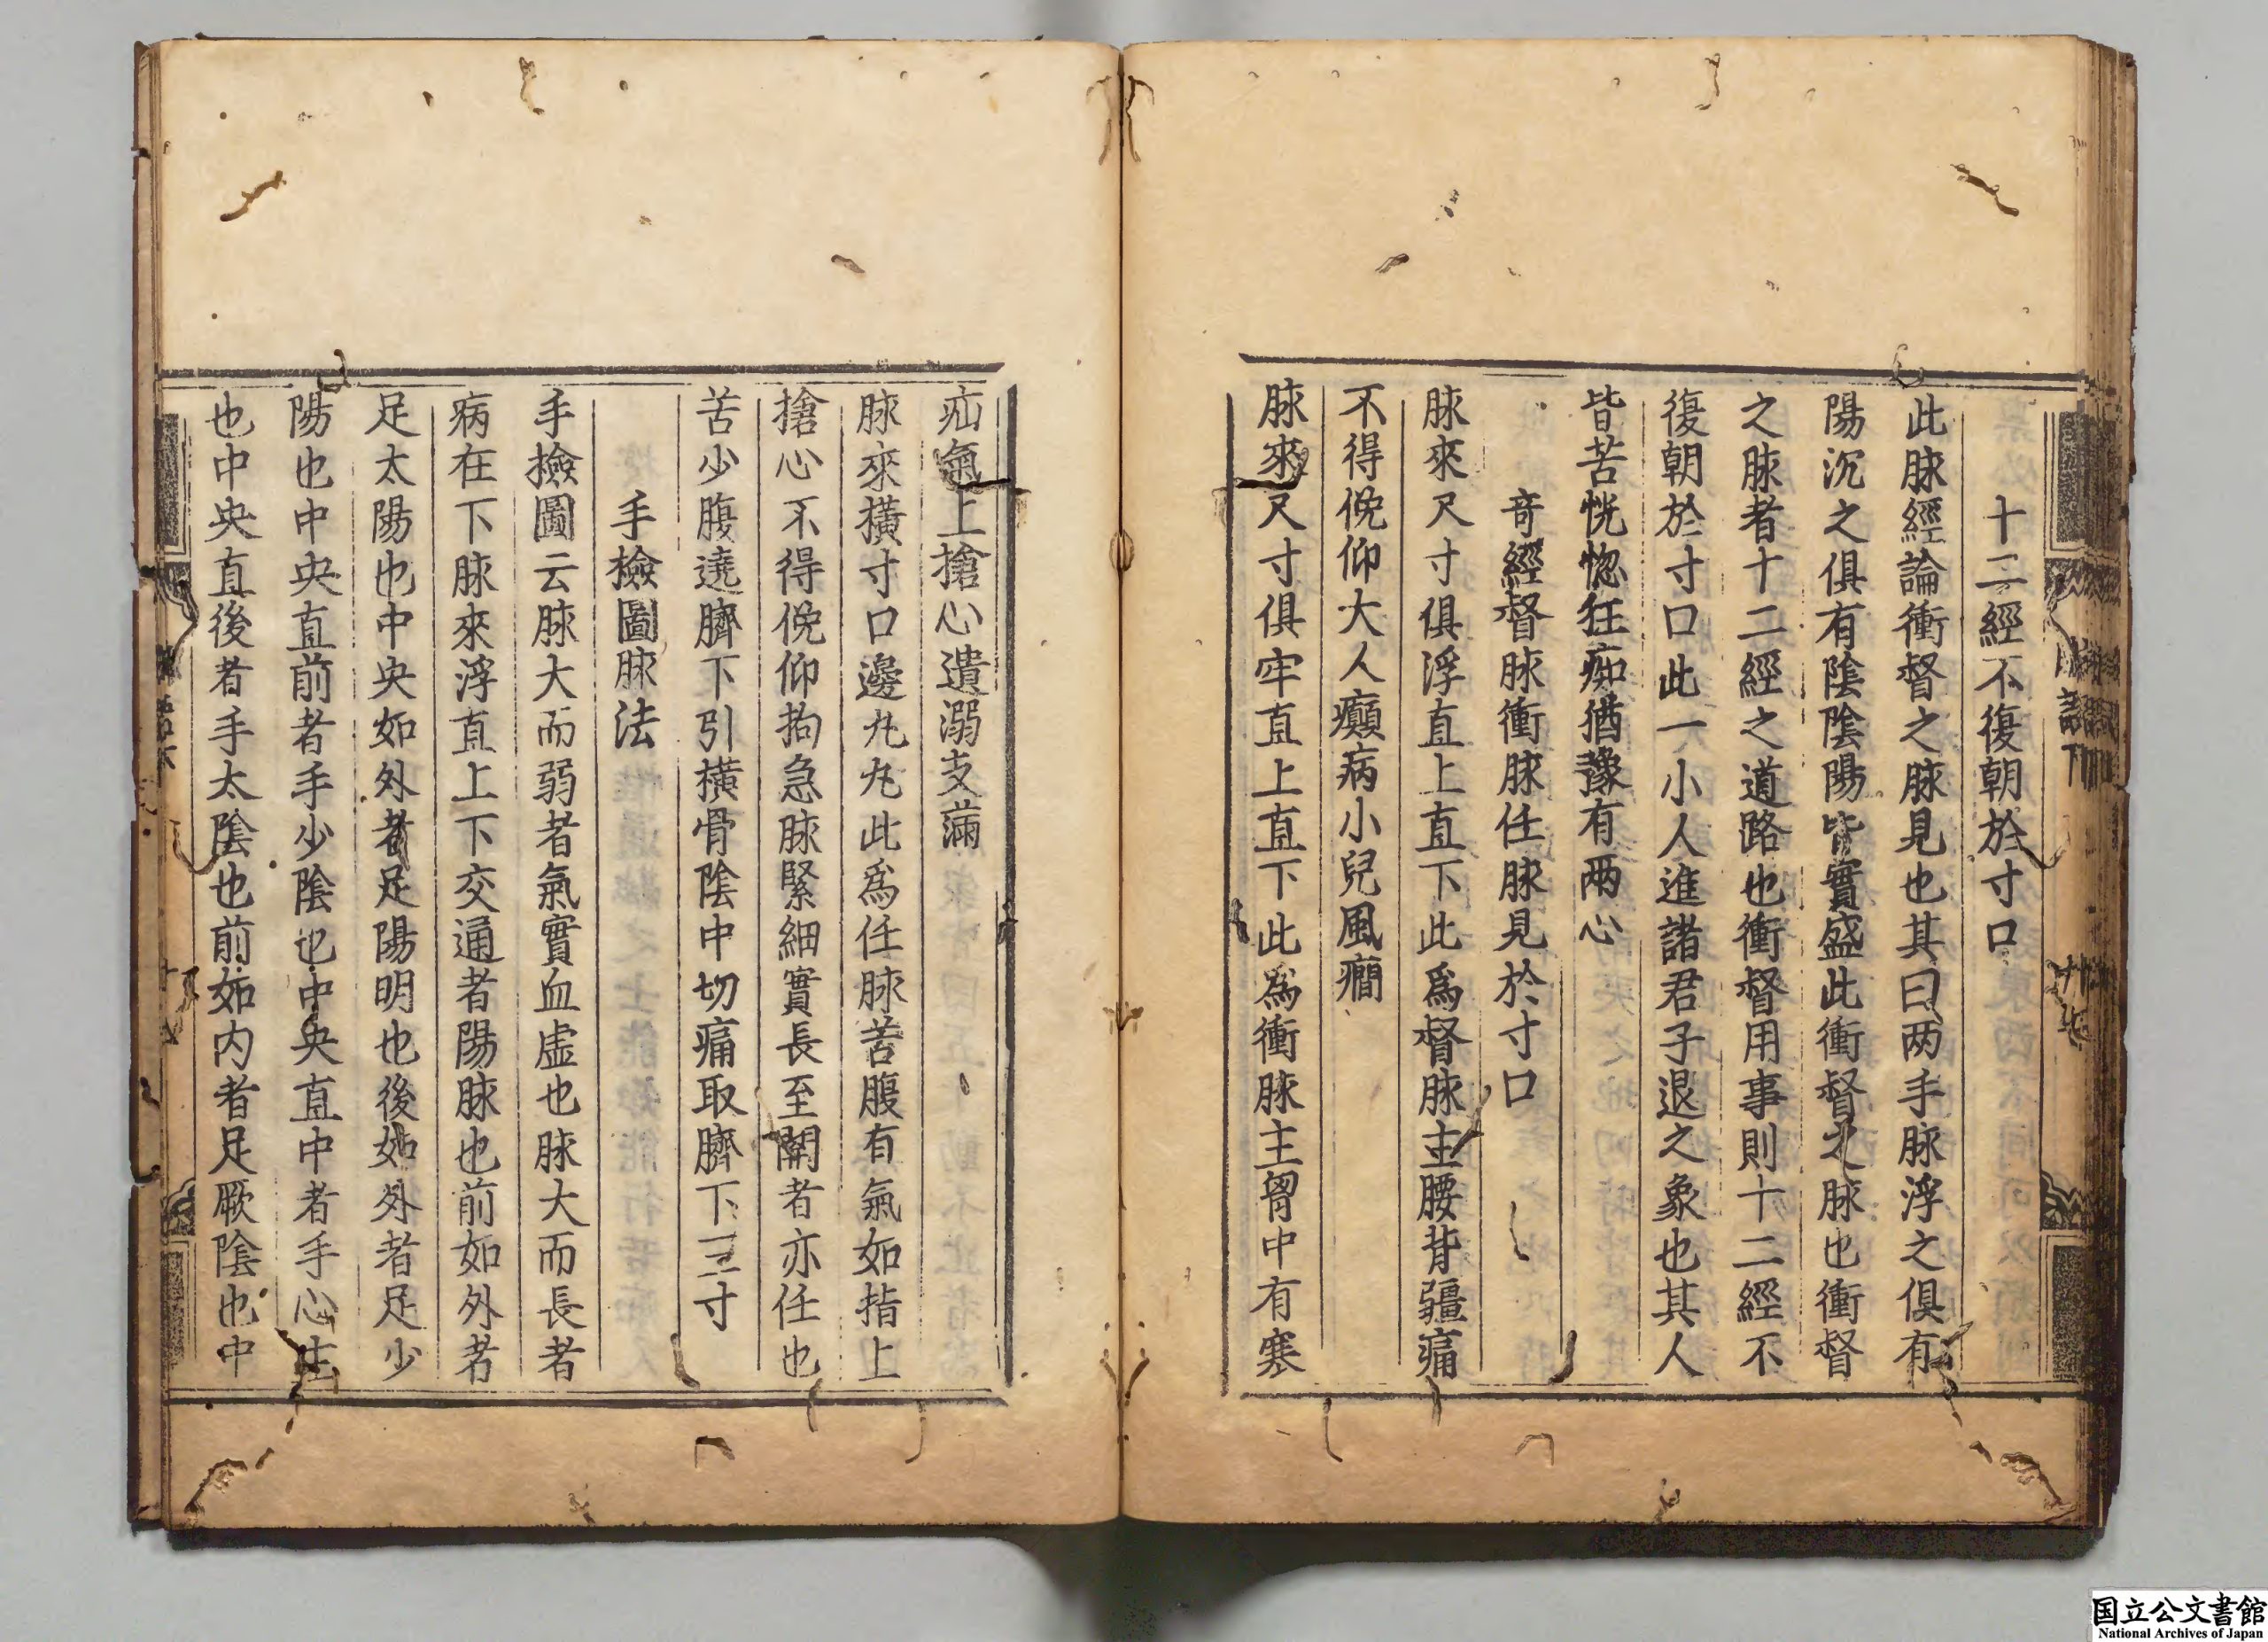 十二經不復朝於寸口
此脉經論衝督之脉見也其曰两手脉浮之俱有
陽沉之俱有陰陰陽皆實盛此衝督之脉也衝督
之脉者十二經之道路也衝督用事則十二經不
復朝於寸口此一小人進諸君子退之象也其人
皆苦恍惚狂痴猶豫有兩心
竒經督脉衝脉任脉見於寸口
脉來尺寸俱浮直上直下此爲督脉主腰背彊痛
不得俛仰大人癲病小兒風癇
脉來尺寸俱牢直上直下此爲衝脉主胷中有寒
疝氣上搶心遺溺支滿
脉來横寸口邊丸丸此爲任脉苦腹有氣如指上
搶心不得俛仰拘急脉緊細實長至關者亦任也
苦少腹遶臍下引横骨陰中切痛取臍下三寸
手檢圖脉法
手撿圖云脉大而弱者氣實血虚也脉大而長者
病在下脉來浮直上下交通者陽脉也前如外者
足太陽也中央如外者足陽明也後如外者足少
陽也中央直前者手少陰也中央直中者手心主
也中央直後者手太陰也前如内者足厥陰也中
国立公文書館
National Archives of Japan